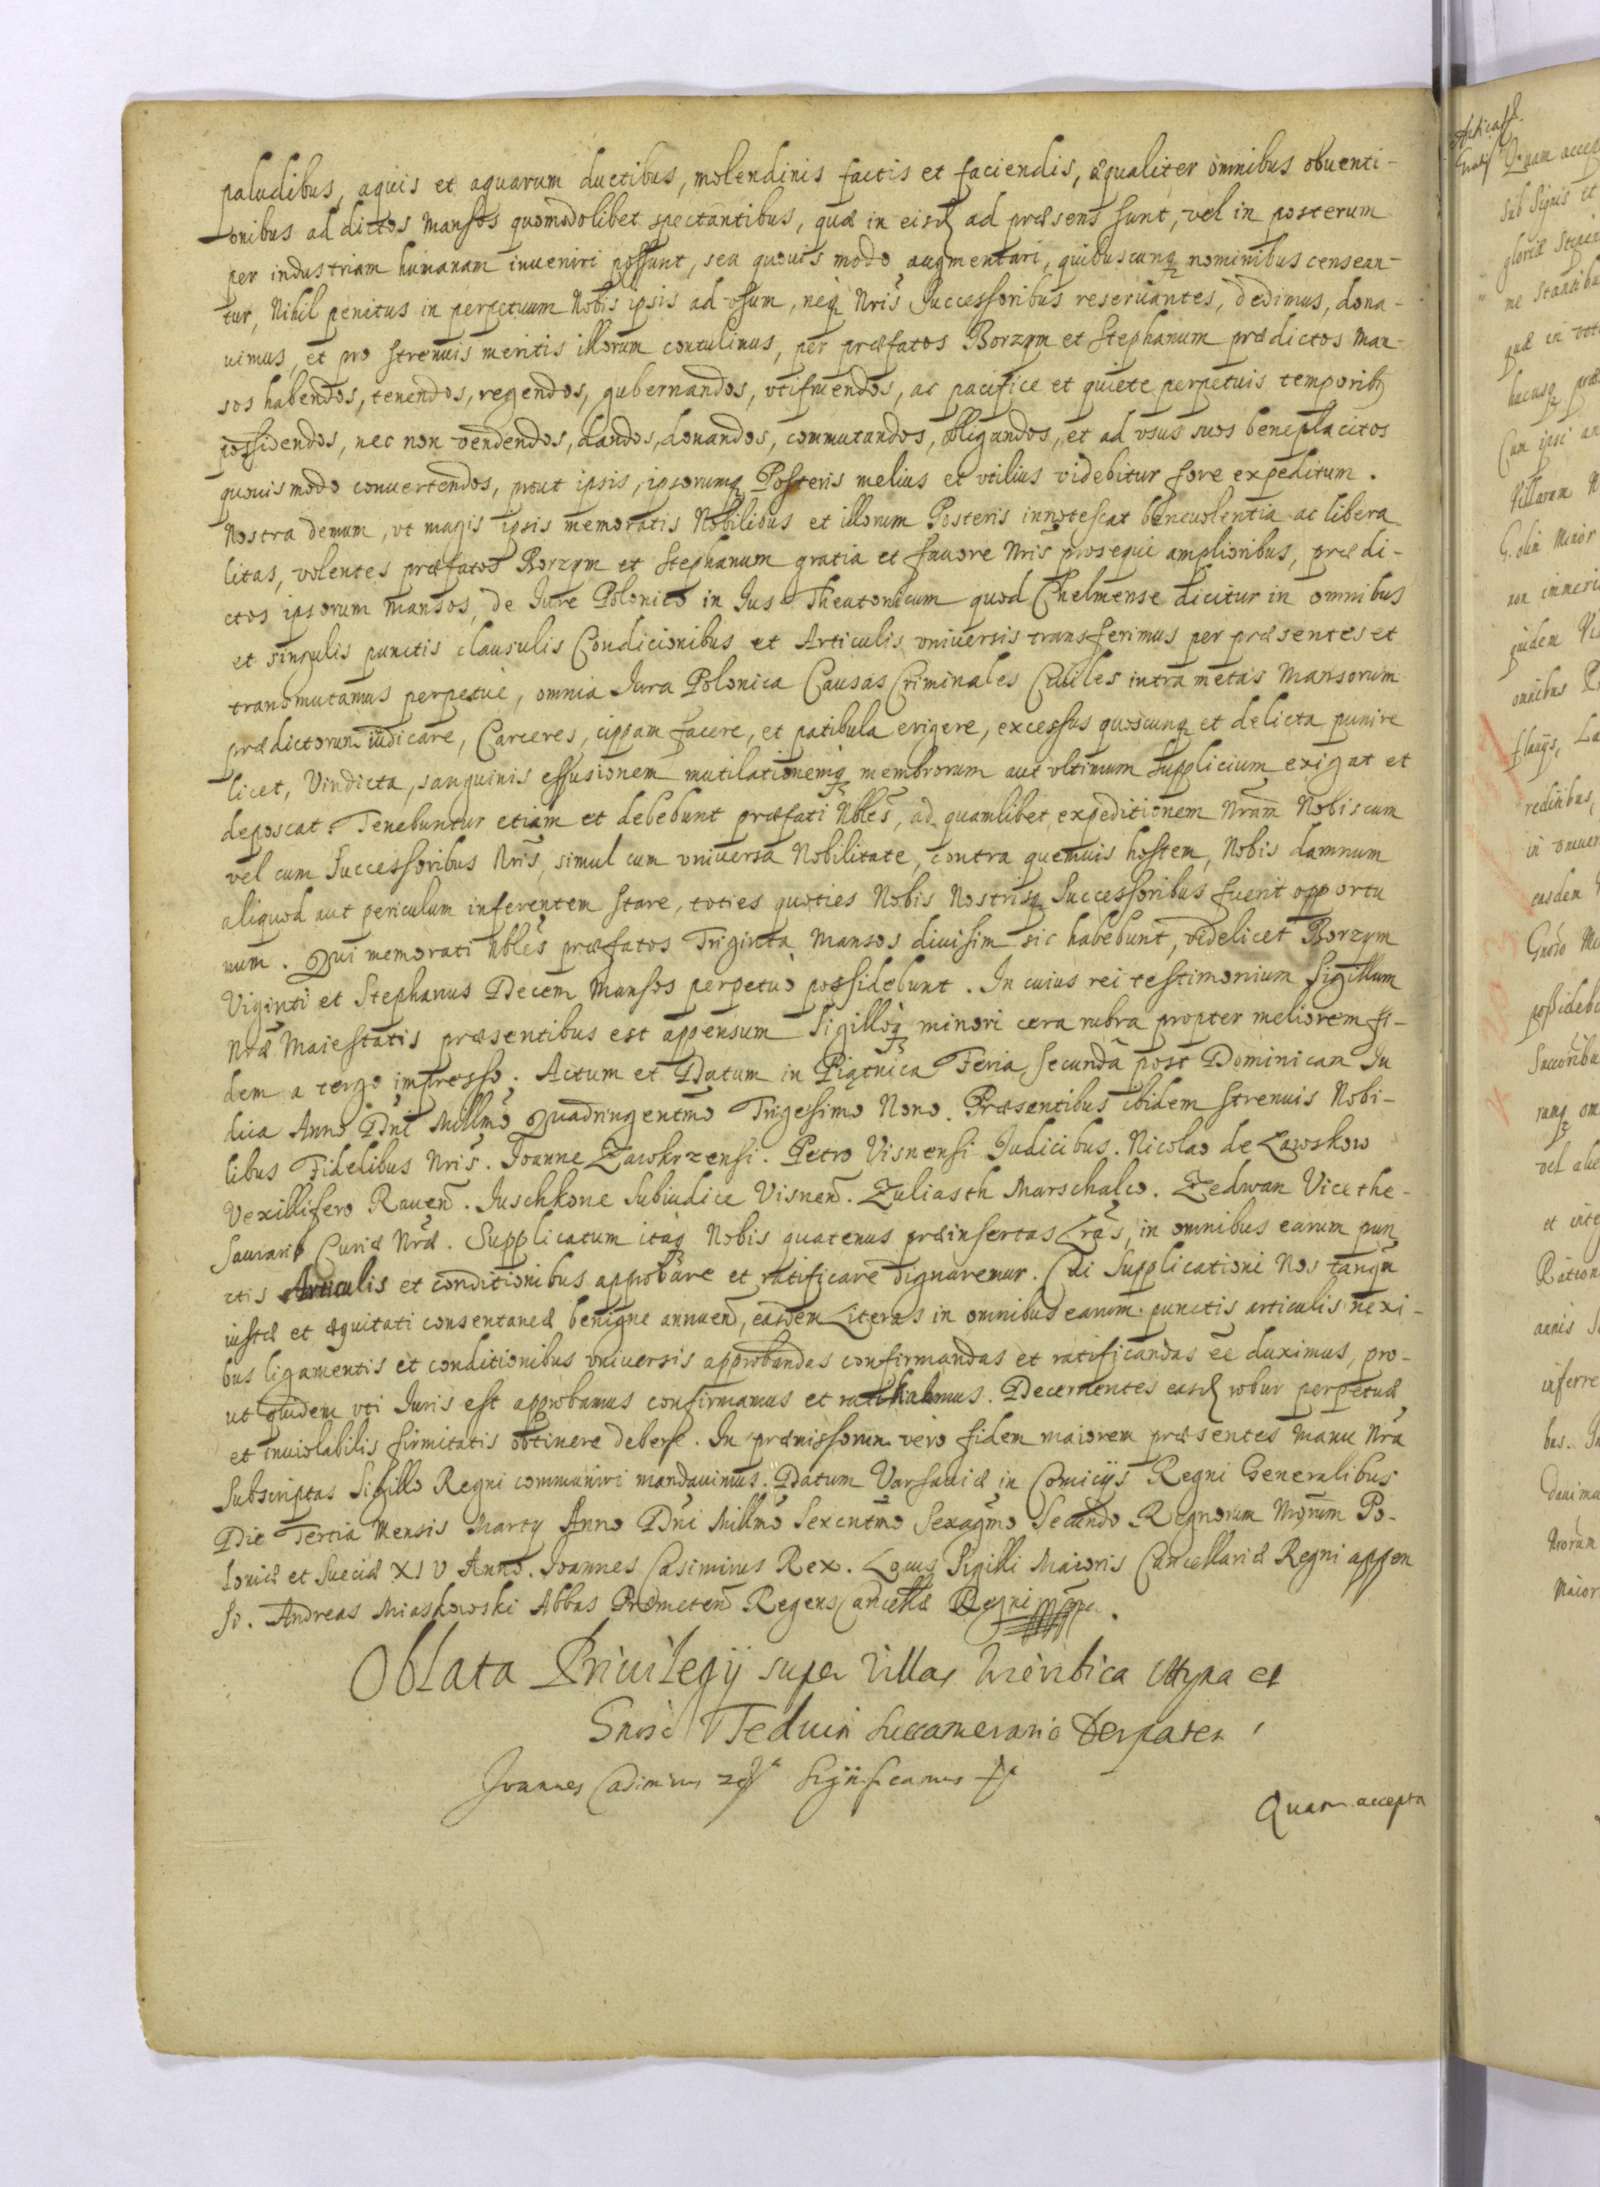 paludibus, aquis et aquarum ductibus, molendinis factis et faciendis, æqualiter omnibus obuenti-
onibus ad dictos mansos quomodolibet spectantibus, quæ in eisd ad præsens sunt, vel in posterum
per industriam humanam inueniri possunt, seu quouis modo augmentari, quibuscunq nominibus censean-
tur, Nihil penitus in perpetuum Nobis ipsis ad vsum, neq Nris Successoribus reseruantes, dedimus, dona-
uimus, et pro strenuis meritis illorum contulimus, per præfatos Borzym et Stephanum prædictos man-
sos habendos, tenendos, regendos, gubernandos, vtifruendos, ac pacifice et quiete perpetuis temporib
possidendos, nec non vendendos, dandos, donandos, commutandos, obligandos, et ad vsus suos beneplacitos
quouis modo conuertendos, prout ipsis, ipsorumq Posteris melius et vtilius videbitur fore expeditum.
Nostra demum, vt magis ipsis memoratis Nobilibus et illorum Posteris innotescat beneuolentia ac libera
litas, volentes præfatos Borzym et Stephanum gratia et fauore Nris prosequi amplioribus, prædi-
ctos ipsorum mansos, de Iure Polonico in Ius Theutonicum quod Chelmense dicitur in omnibus
et singulis punctis clausulis Condicionibus et Articulis vniuersis transferimus per præsentes et
transmutamus perpetuè, omnia Iura Polonica Causas Criminales Ciuiles intra metas Mansorum
prædictorum iudicare, Carceres, cippum facere, et patibula erigere, excessus quoscunq et delicta punire
licet, Vindicta, sanguinis effusionem mutilationemq membrorum aut vltimum supplicium exigat et
deposcat. Tenebuntur etiam et debebunt præfati Nbles, ad quamlibet expeditionem Nram Nobiscum
vel cum Successoribus Nris, simul cum vniuersa Nobilitate, contra quemuis hostem, Nobis damnum
aliquod aut periculum inferentem stare, toties quoties Nobis Nostrisq Successoribus fuerit opportu
num. Qui memorati Nbles præfatos Triginta Mansos diuisim sic habebunt, videlicet Borzym
Viginti et Stephanus Decem Mansos perpetuò possidebunt. In cuius rei testimonium Sigillum
Nræ Maiestatis præsentibus est appensum Sigilloq minori cera rubra propter meliorem fi-
dem a tergo impresso. Actum et Datum in Piątnica Feria secunda post Dominicam Iu
dica Anno Dni Millmo Quadringentmo Trigesimo Nono. Præsentibus ibidem strenuis Nobi-
libus Fidelibus Nris. Joanne Zawkrzensi. Petro Visnensi Iudicibus. Nicolao de Lawskow
Vexillifero Rauen. Juschkone Subiudice Visnen. Zuliasth Marschalco. Zedwan Vicethe-
saurario Curiæ Nræ. Supplicatum itaq Nobis quatenus præinsertas Lras, in omnibus earum pun
ctis Articulis et conditionibus approbare et ratificare dignaremur. Cui Supplicationi Nos tanqm
iustæ et æquitati consentaneæ benigne annuen, easdem Literas in omnibus earum punctis articulis nexi-
bus ligamentis et conditionibus vniuersis approbandas confirmandas et ratificandas ee duximus, pro-
ut quidem vti Iuris est approbamus confirmamus et ratihabemus. Decernentes easd robur perpetuæ
et inuiolabilis firmitatis obtinere debere. In præmissorum vero fidem maiorem præsentes Manu Nra
Subscriptas Sigillo Regni communiri mandauimus. Datum Varsauiæ in Comicijs Regni Generalibus
Die Tertia Mensis Marty Anno Dni Millmo Sexcentmo Sexagmo Secundo Regnorum Nrorum Po-
loniæ et Sueciæ XIV Anno. Joannes Casimirus Rex. Locus Sigilli Maioris Cancellariæ Regni appen
si. Andreas Miaskowski Abbas Præmeten Regens Cancellæ Regni mppa.
Oblata Priuilegij super Villas et
Succamerario Derpaten
Joannes Casimirus Significamus
Quam accepta